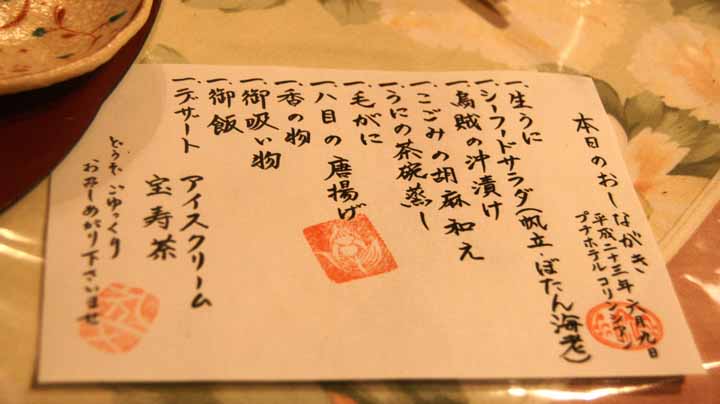 本日のおしながき
平成二十三年 六月九日
プナホテル コリンシアン
一、生うに
一、シーフードサラダ(帆立・ぼたん海老)
一、烏賊の沖漬け
一、こごみの胡麻和え
一、うにの茶碗蒸し
一、毛がに
一、八目の唐揚げ
一、香の物
一、御吸い物
一、御飯
一、デザート アイスクリーム
宝寿茶
どうぞごゆっくり
お召しあがり下さいませ